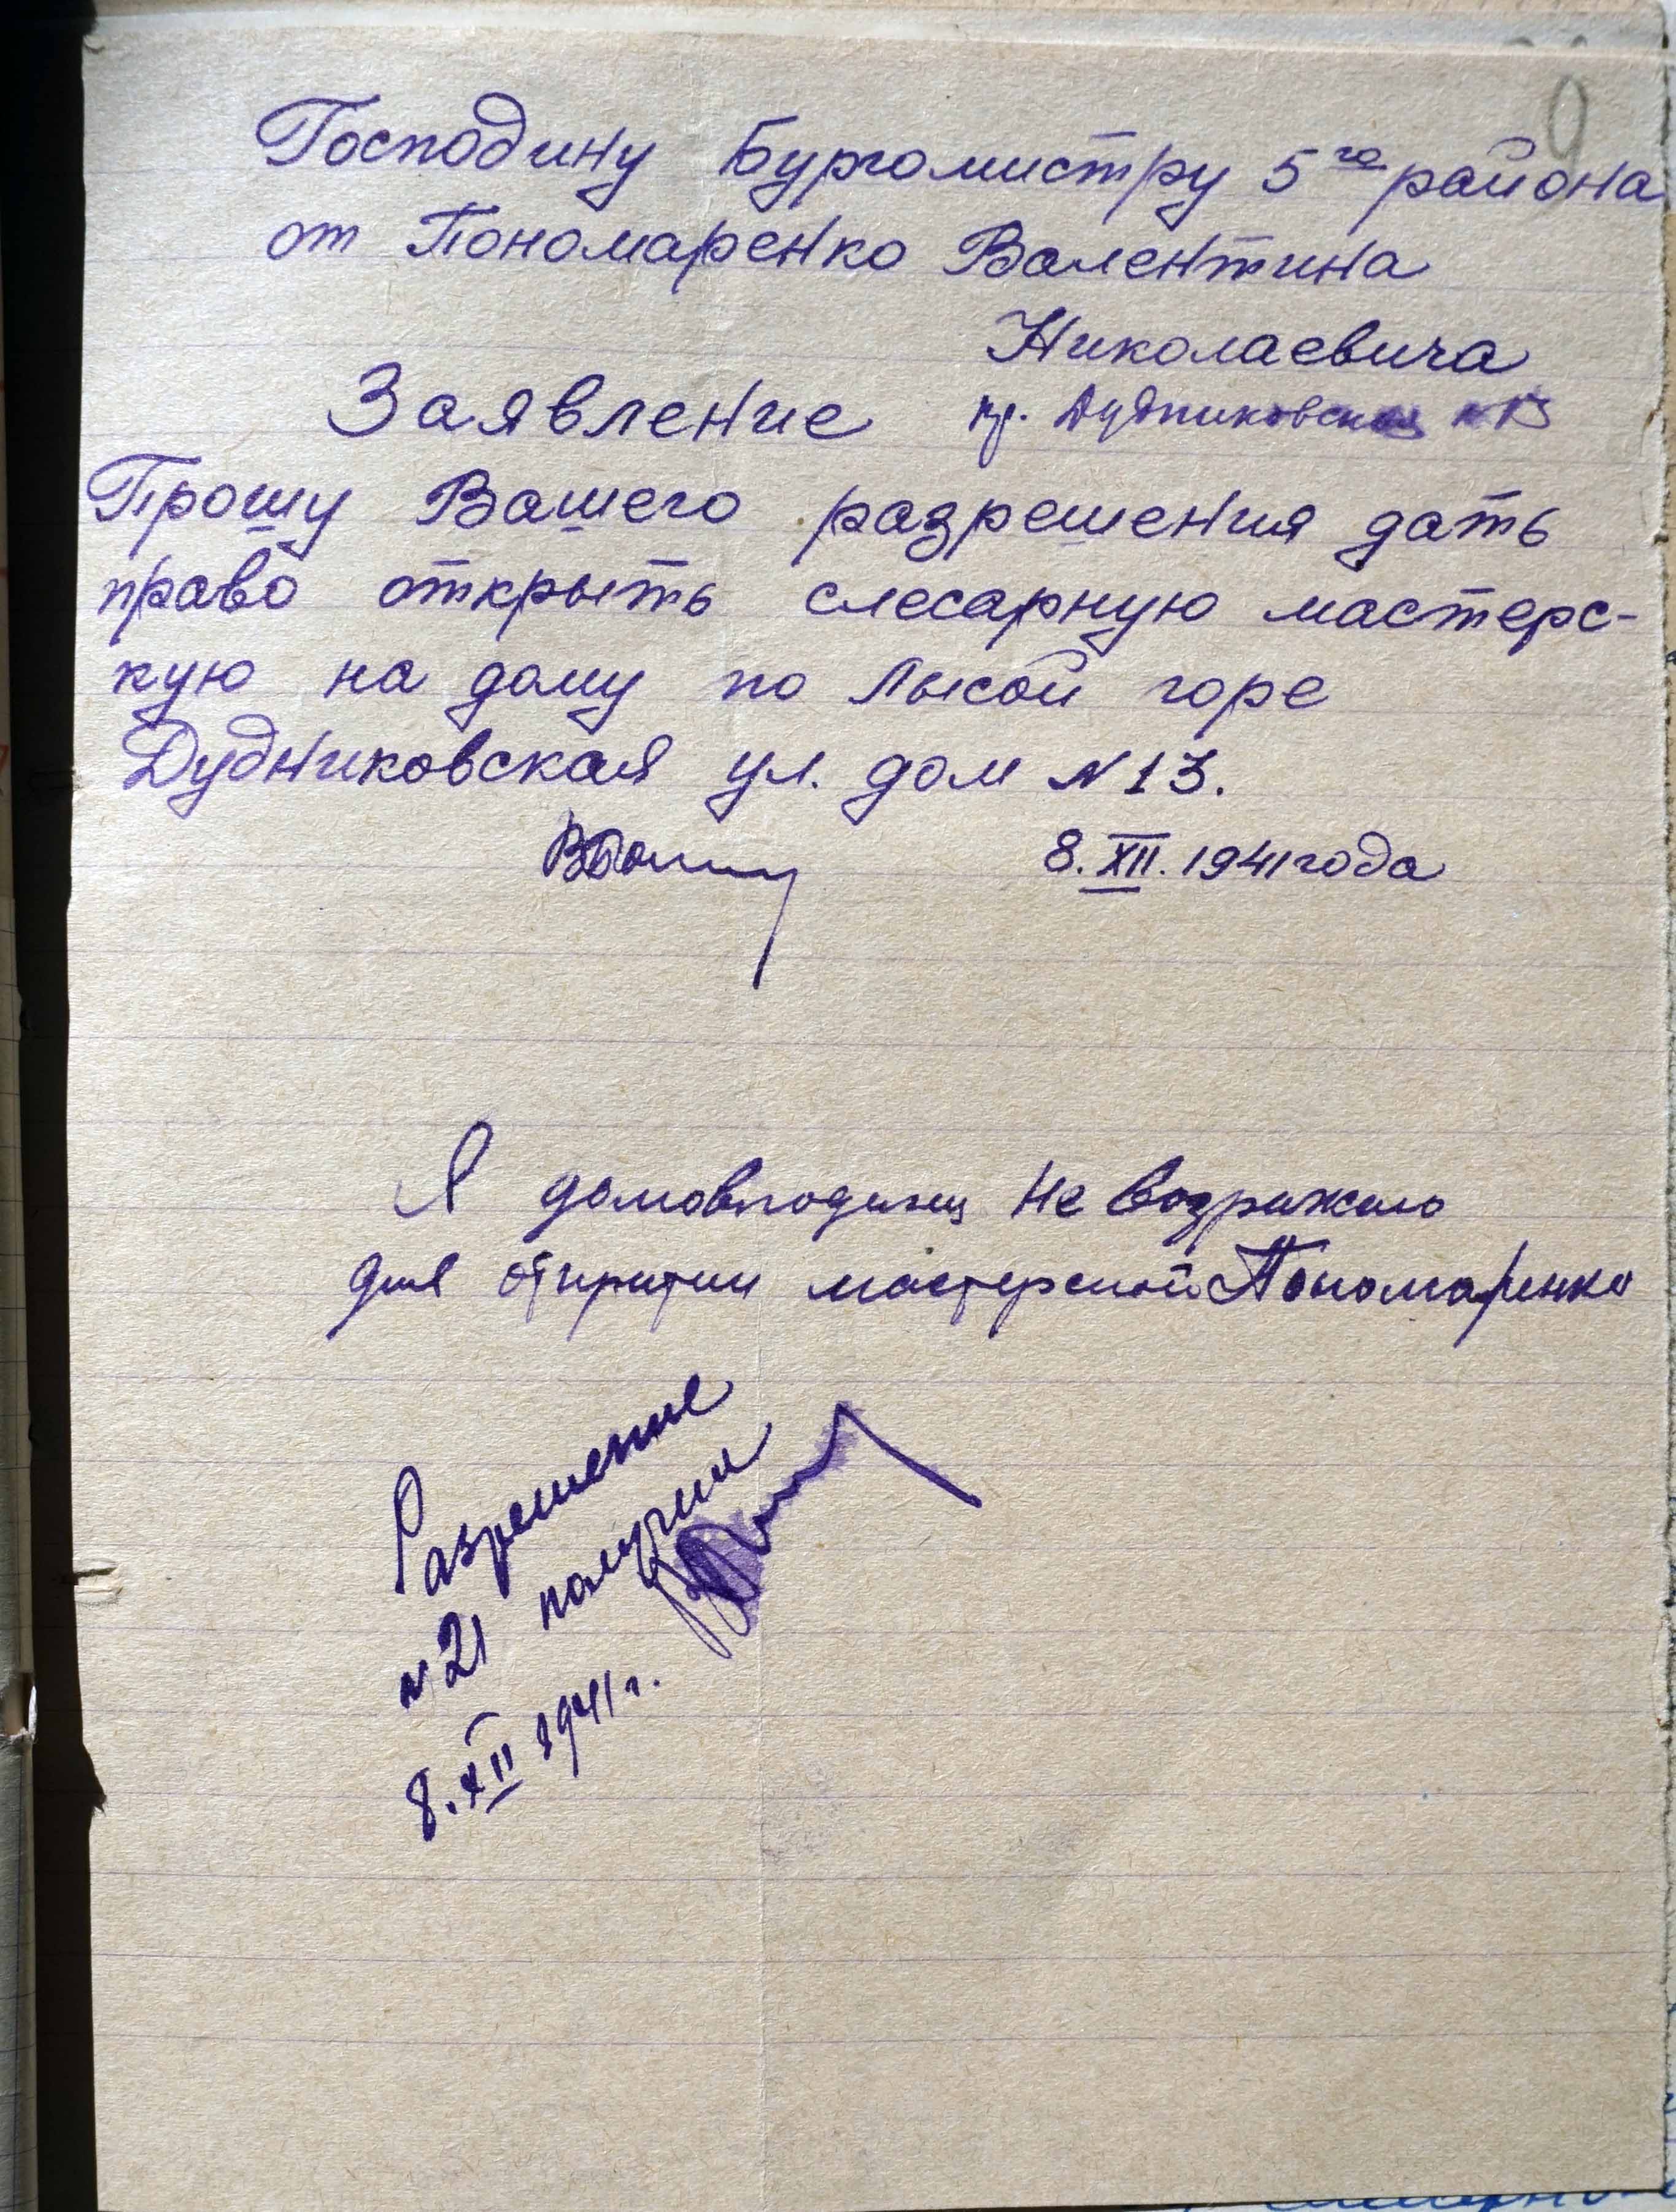 9
Господину Бургомистру 5го района
от Пономаренко Валентина
Николаевича
пр. Дудниковская N 13
Заявление
Прошу Вашего разрешения дать
право открыть слесарную мастерс-
кую на дому по Лысой горе
Дудниковская ул. дом N 13.
8.XII.1941 года
Я домовладелец не возражаю
для открытии мастерской Пономаренко
Разрешение
N 21 получил
8.XII 1941 г.